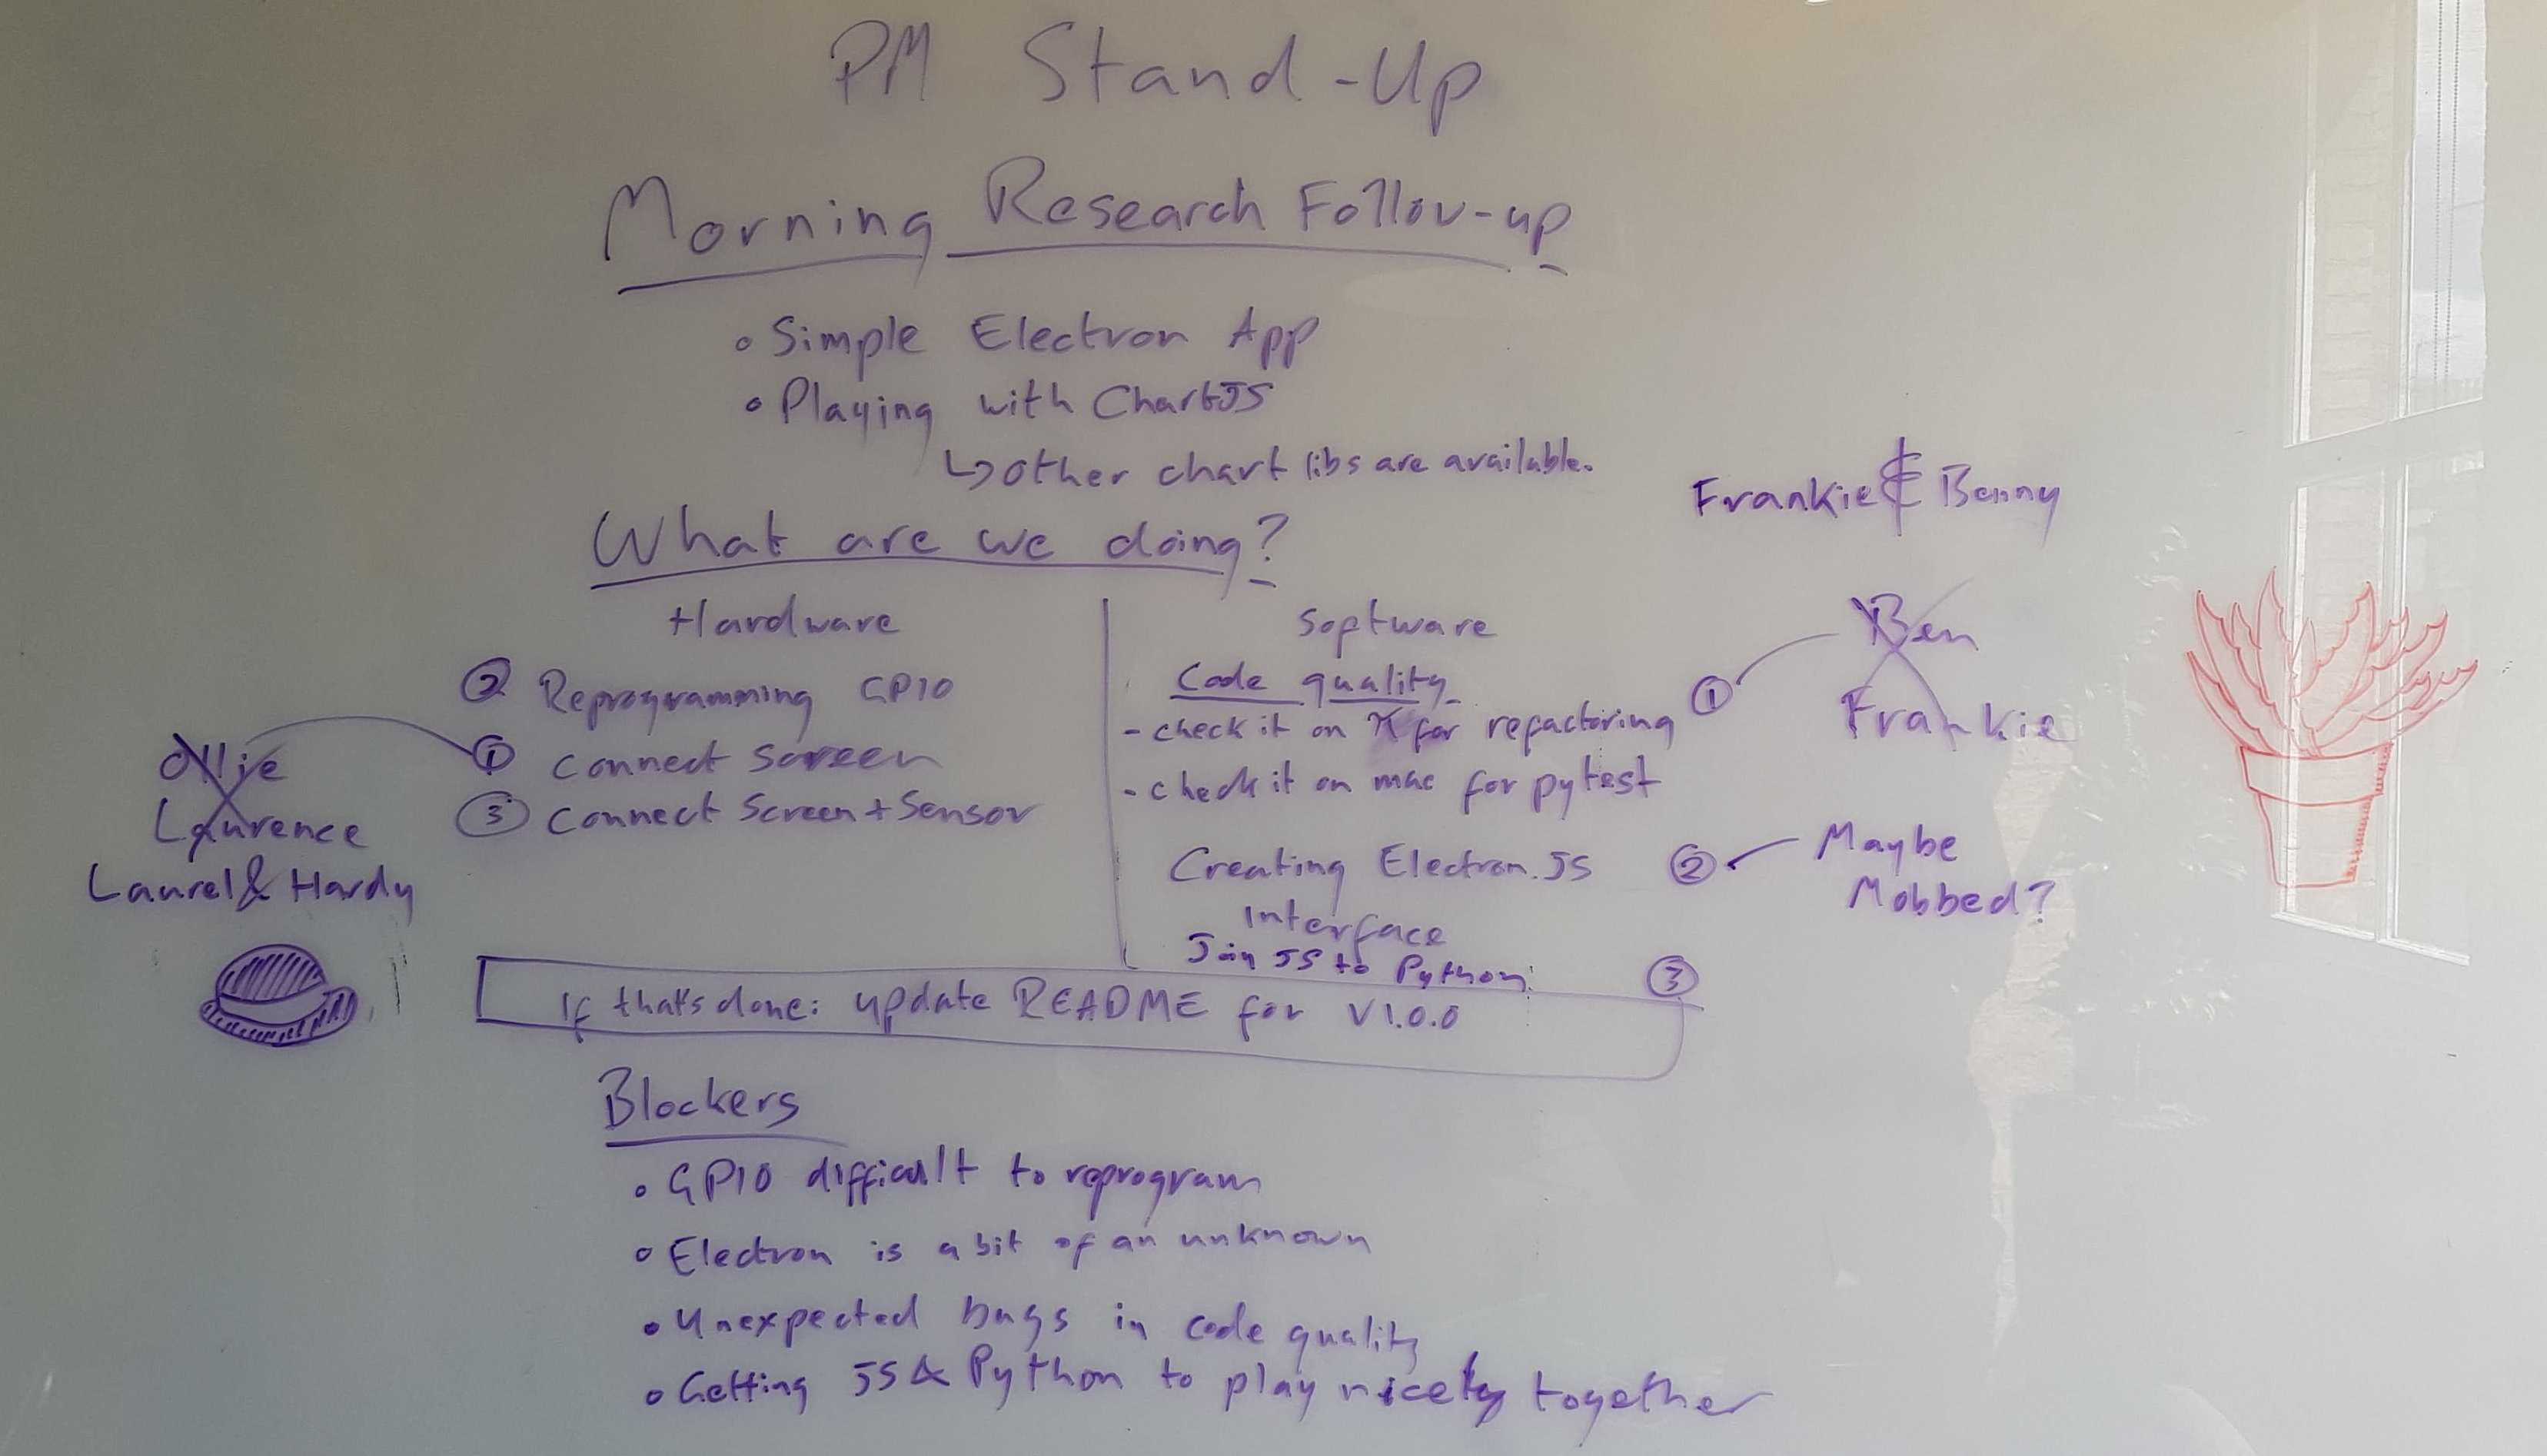 PM Stand-Up
Morning Research Follow-up
• Simple Electron App
• Playing with ChartJS
↳ other chart libs are available.
What are we doing?
Hardware
② Reprogramming GPIO
① Connect Screen
③ Connect Screen + Sensor
Ollie
Laurence
Laurel & Hardy
Software
Code quality
- check it on π for refactoring
- check it on mac for pytest
①
Creating Electron.JS
Interface
②
Join JS to Python
③
Frankie & Benny
Ben
Frankie
Maybe
Mobbed?
If that's done: update README for V1.0.0
Blockers
• GPIO difficult to reprogram
• Electron is a bit of an unknown
• Unexpected bugs in code quality
• Getting JS & Python to play nicely together